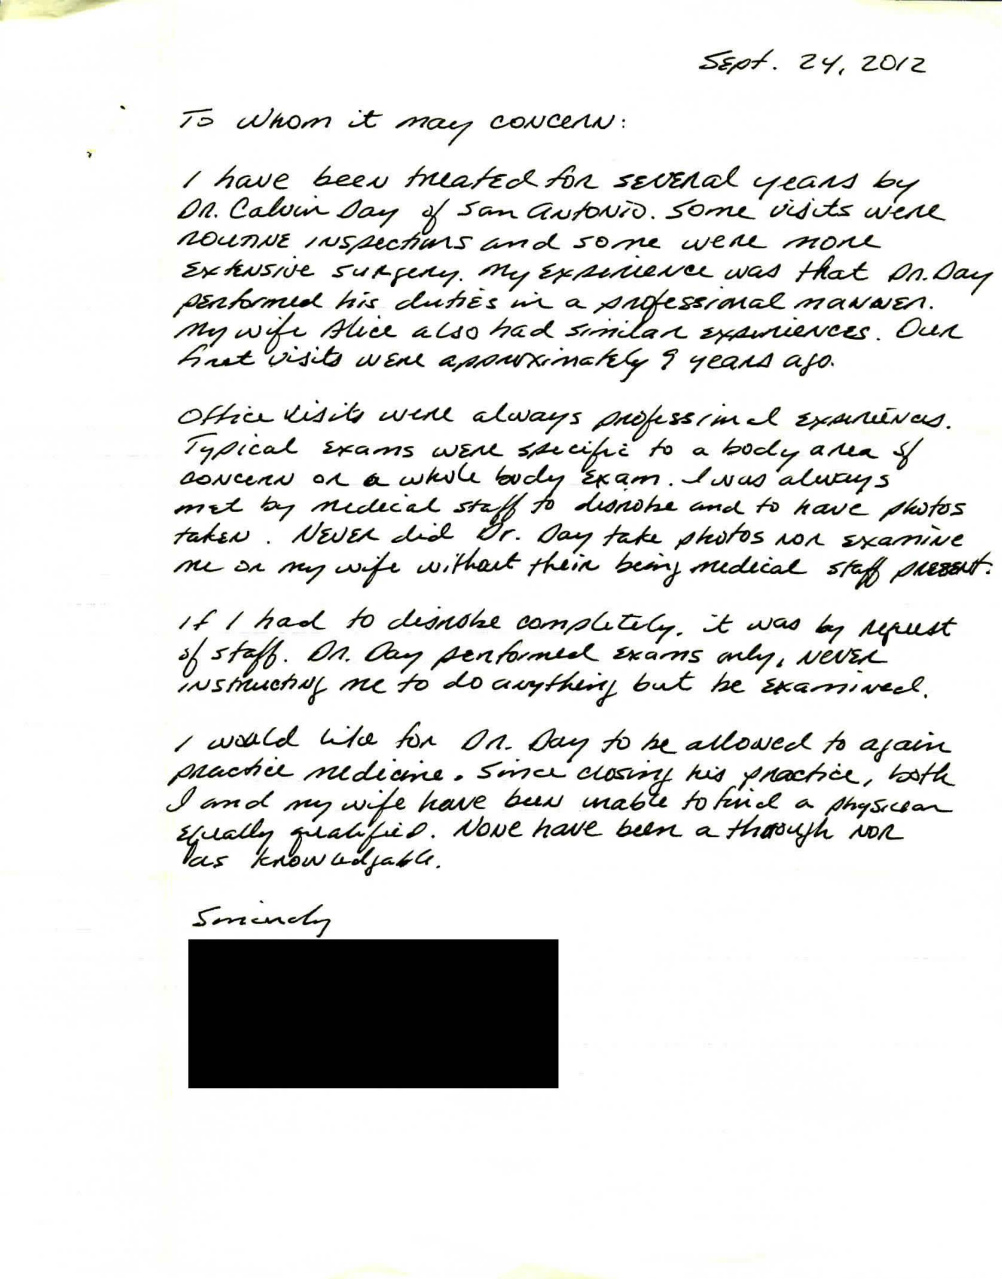 Sept. 24, 2012
To whom it may concern:
I have been treated for several years by
Dr. Calvin Day of San Antonio. Some visits were
routine inspections and some were more
extensive surgery. My experience was that Dr. Day
performed his duties in a professional manner.
My wife Alice also had similar experiences. Our
first visits were approximately 9 years ago.
Office visits were always professional experiences.
Typical exams were specific to a body area of
concern or a whole body exam. I was always
met by medical staff to disrobe and to have photos
taken. Never did Dr. Day take photos nor examine
me or my wife without their being medical staff present.
If I had to disrobe completely, it was by request
of staff. Dr. Day performed exams only, never
instructing me to do anything but be examined.
I would like for Dr. Day to be allowed to again
practice medicine. Since closing his practice, both
I and my wife have been unable to find a physician
equally qualified. None have been a through nor
as knowledgable.
Sincerely